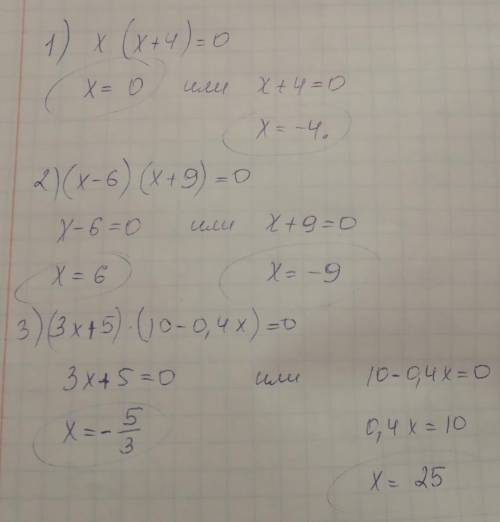 1) x (x+4)=0
x= 0 или x+4=0
x= -4.
2) (x-6) (x+9)=0
x-6=0 или x+9=0
x=6 x= -9
3) (3x+5)·(10-0,4x)=0
3x+5=0 или 10-0,4x=0
x=-5/3 0,4x=10
x= 25